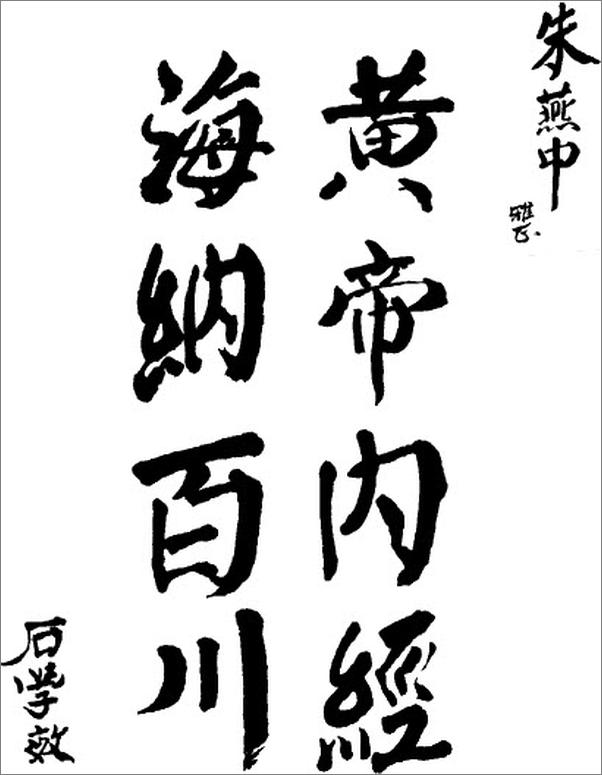 朱燕中
雅正
黄帝内經
海納百川
石學敏